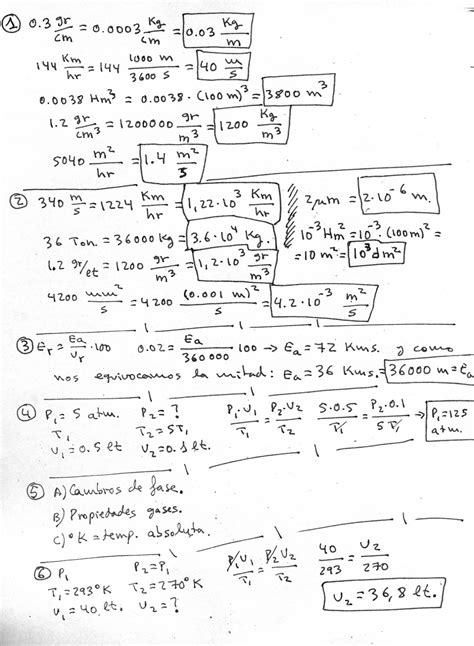 ① 0.3 gr/cm = 0.0003 Kg/cm = 0.03 Kg/m
144 Km/hr = 144 1000 m/3600 s = 40 m/s
0.0038 Hm³ = 0.0038 · (100 m)³ = 3800 m³
1.2 gr/cm³ = 1200000 gr/m³ = 1200 Kg/m³
5040 m²/hr = 1.4 m²/s
② 340 m/s = 1224 Km/hr = 1,22·10³ Km/hr
36 Ton. = 36000 Kg = 3.6·10⁴ Kg.
1.2 gr/lt = 1200 gr/m³ = 1,2·10³ gr/m³
4200 mm²/s = 4200 (0.001 m)²/s = 4.2·10⁻³ m²/s
2 μm = 2·10⁻⁶ m.
10⁻³ Hm² = 10⁻³·(100 m)² =
= 10 m² = 10³ dm²
③ Er = Ea/Vr · 100 0.02 = Ea/360000 · 100 → Ea = 72 Kms. y como
nos equivocamos la mitad: Ea = 36 Kms. = 36000 m = Ea
④ P₁ = 5 atm. P₂ = ? P₁·V₁/T₁ = P₂·V₂/T₂ 5·0.5/T₁ = P₂·0.1/5T₁ → P₁ = 125 atm.
T₁ T₂ = 5T₁
V₁ = 0.5 lt V₂ = 0.1 lt.
⑤ A) Cambios de fase.
B) Propiedades gases.
C) °K = temp. absoluta.
⑥ P₁ P₂ = P₁ P₁V₁/T₁ = P₂V₂/T₂ 40/293 = V₂/270
T₁ = 293°K T₂ = 270°K
V₁ = 40 lt. V₂ = ?
V₂ = 36,8 lt.